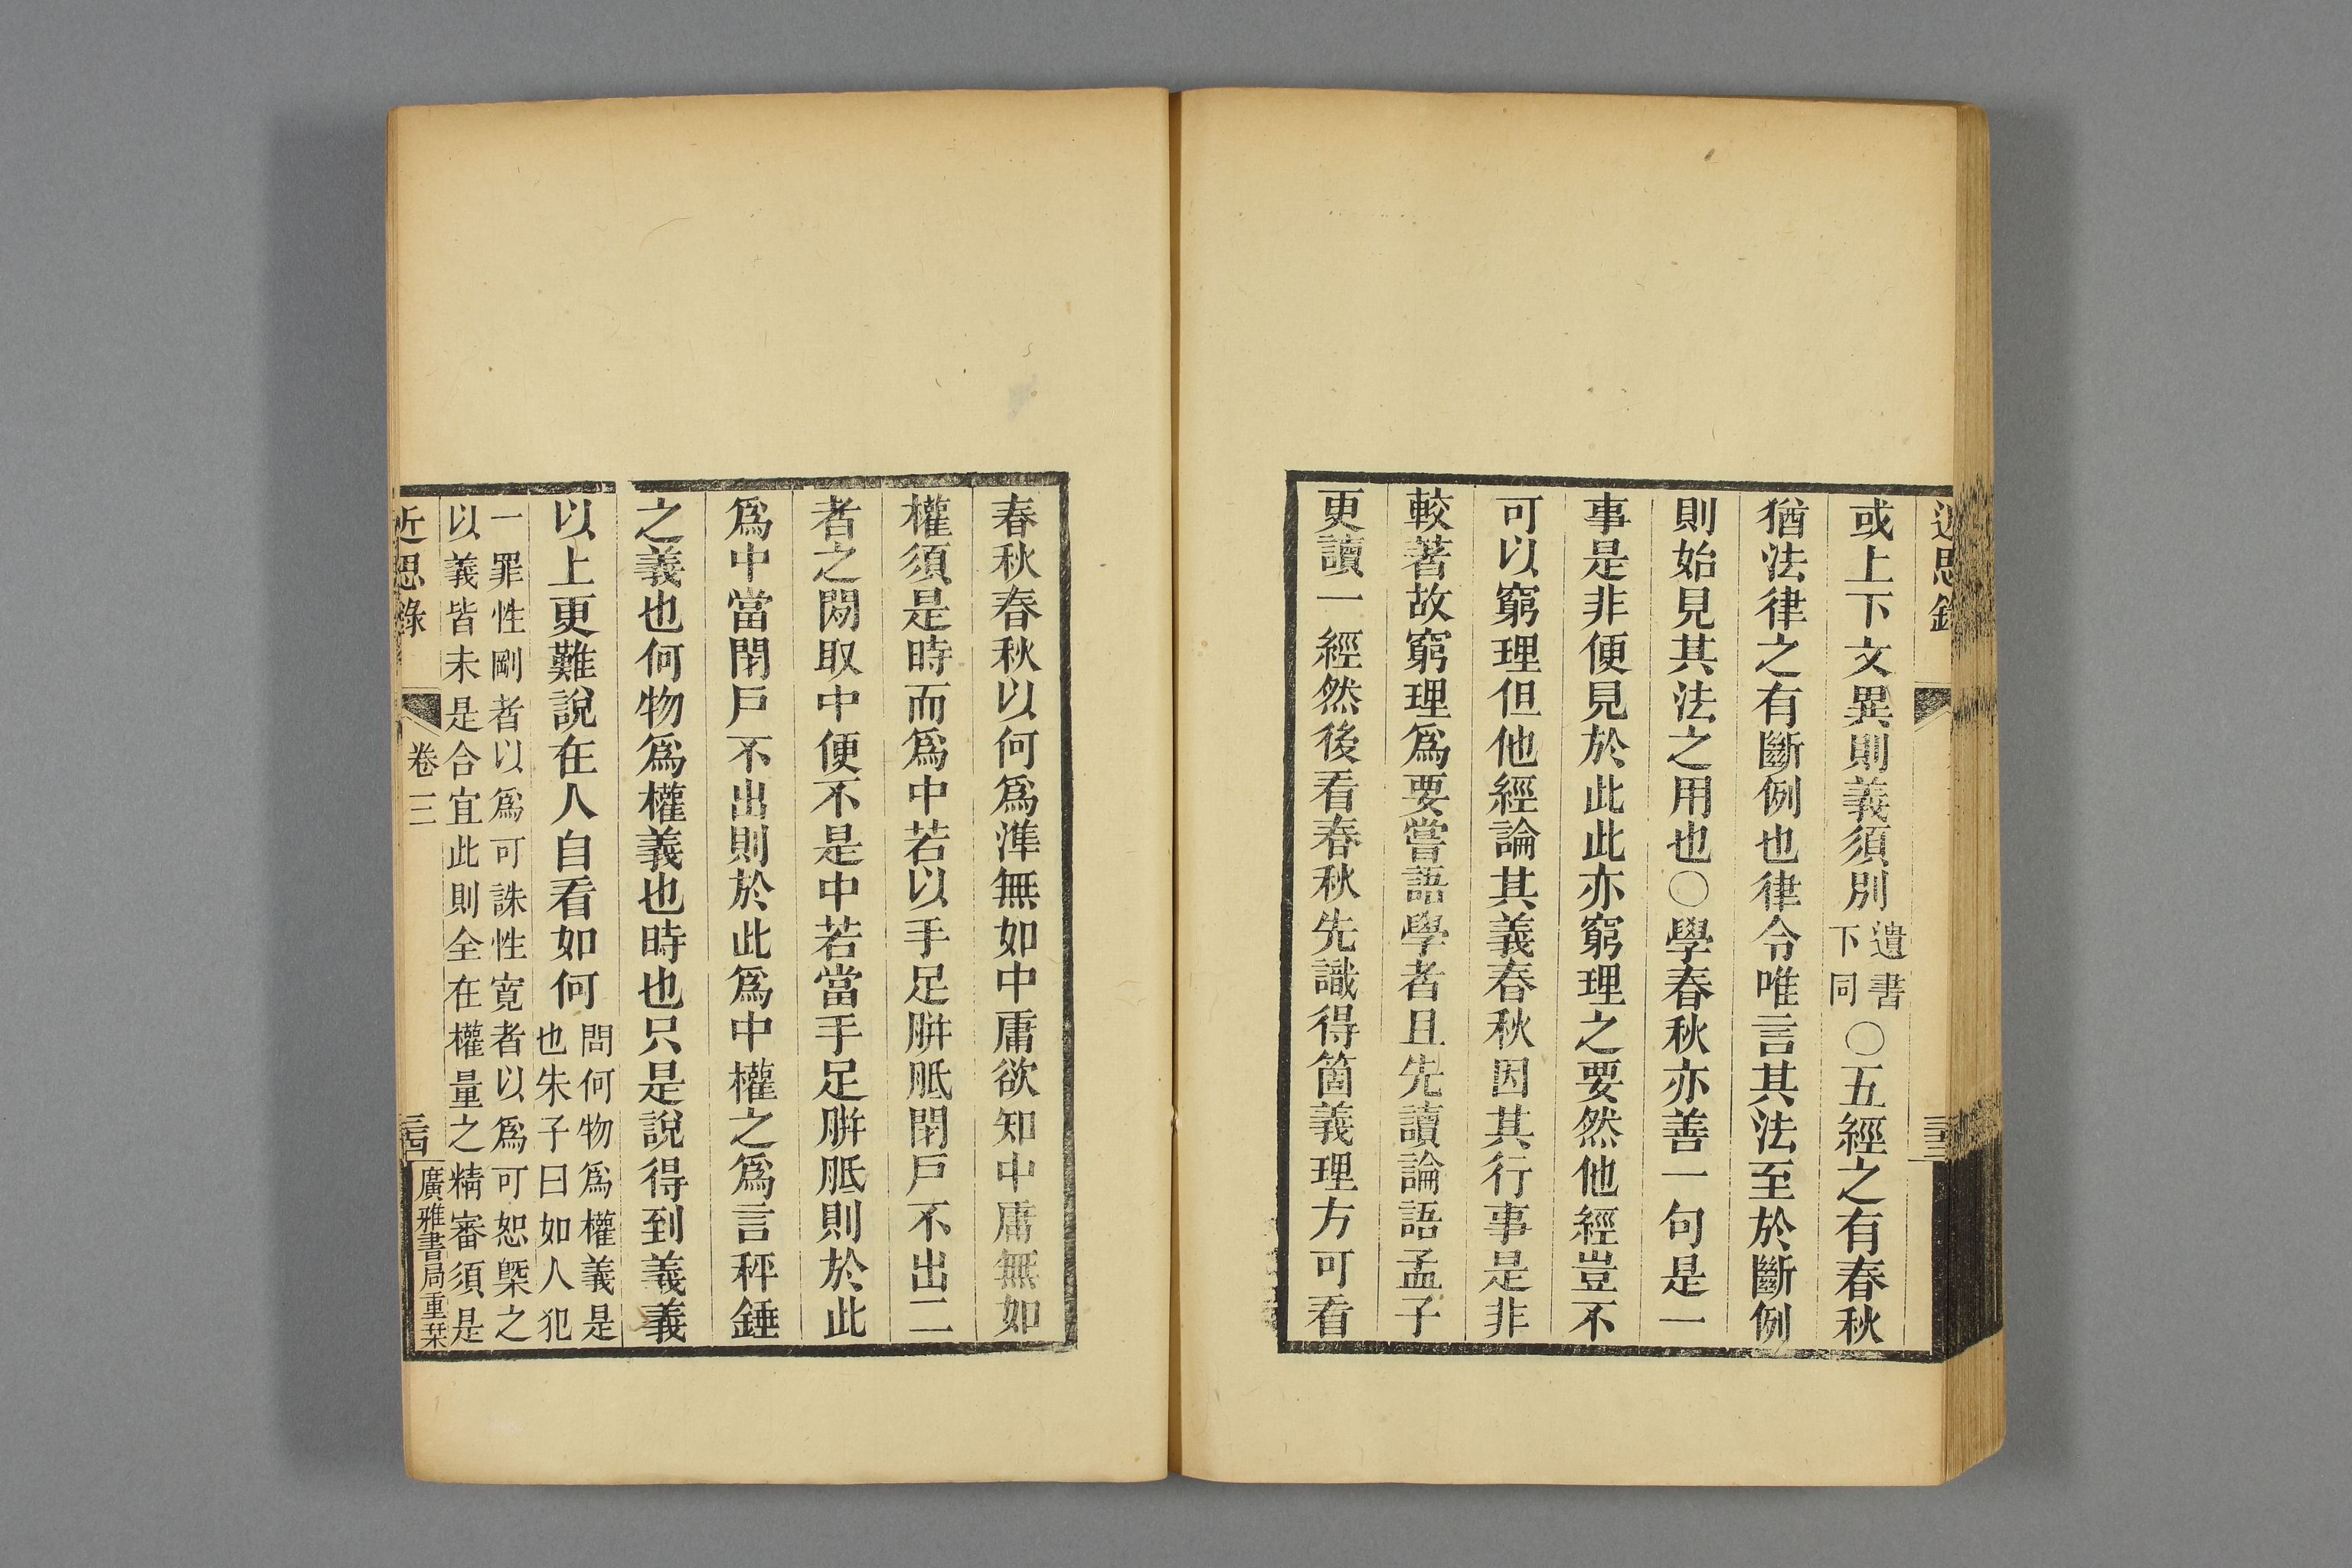 近思錄
三十三
或上下文異則義須別遺書下同〇五經之有春秋
猶法律之有斷例也律令唯言其法至於斷例
則始見其法之用也〇學春秋亦善一句是一
事是非便見於此此亦窮理之要然他經豈不
可以窮理但他經論其義春秋因其行事是非
較著故窮理爲要嘗語學者且先讀論語孟子
更讀一經然後看春秋先識得箇義理方可看
春秋春秋以何爲準無如中庸欲知中庸無如
權須是時而爲中若以手足胼胝閉戶不出二
者之閒取中便不是中若當手足胼胝則於此
爲中當閉戶不出則於此爲中權之爲言秤錘
之義也何物爲權義也時也只是說得到義義
以上更難說在人自看如何問何物爲權義是
也朱子曰如人犯
一罪性剛者以爲可誅性寬者以爲可恕槩之
以義皆未是合宜此則全在權量之精審須是
近思錄
卷三
三十四
廣雅書局重栞